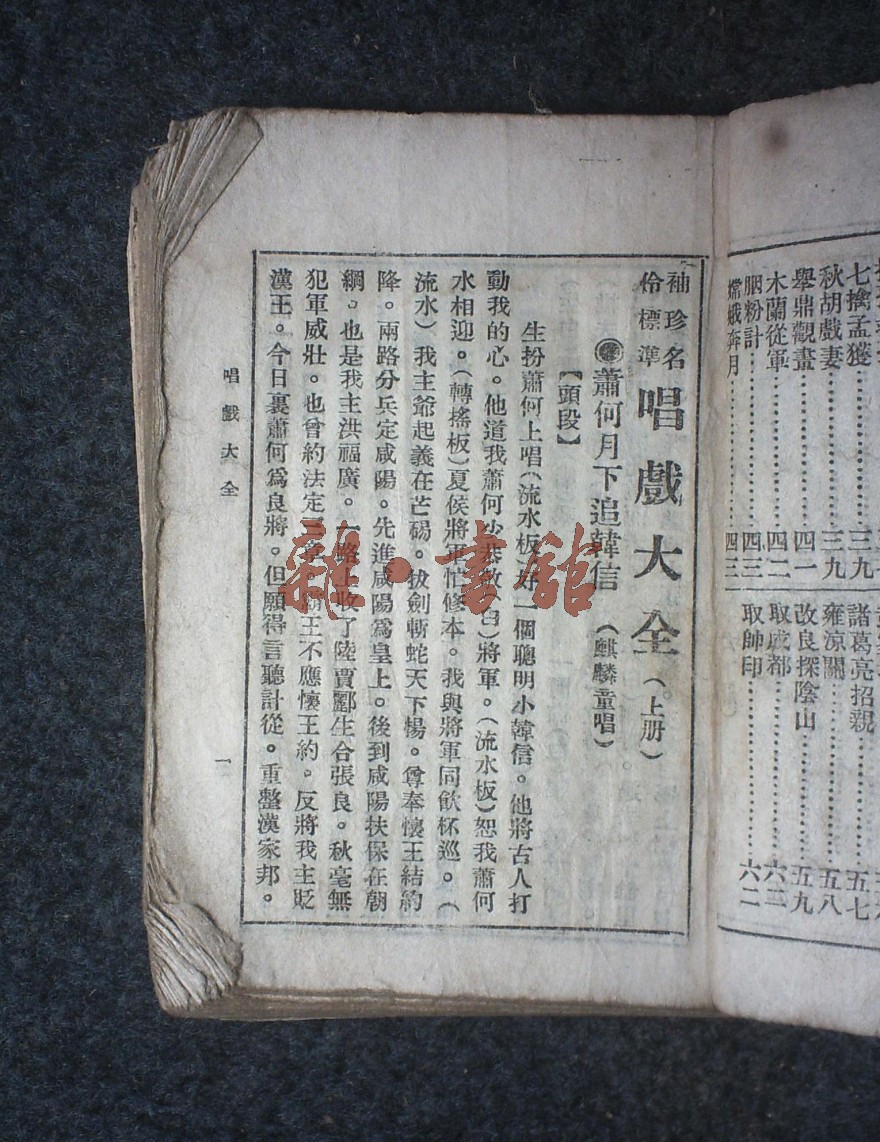 七擒孟獲………三九
秋胡戲妻………三九
舉鼎觀畫………四一
木蘭從軍………四二
胭粉計………四三
嫦娥奔月………四三
諸葛亮招親………五七
雍涼關………五八
改良探陰山………五九
取成都………六二
取帥印………六二
袖珍名伶標準 唱戲大全（上册）
蕭何月下追韓信（麒麟童唱）
【頭段】
生扮蕭何上唱（流水板）好一個聰明小韓信。他將古人打
動我的心。他道我蕭何少恭敬（白）將軍。（流水板）恕我蕭何
水相迎。（轉搖板）夏侯將軍忙修本。我與將軍同飲杯巡。（
流水）我主爺起義在芒碭。拔劍斬蛇天下揚。尊奉懷王結約
降。兩路分兵定咸陽。先進咸陽爲皇上。後到咸陽扶保在朝
綱。也是我主洪福廣。一路上收了陸賈酈生合張良。秋毫無
犯軍威壯。也曾約法定三章。霸王不應懷王約。反將我主貶
漢王。今日裏蕭何爲良將。但願得言聽計從。重整漢家邦。
唱戲大全
一
雜·書館